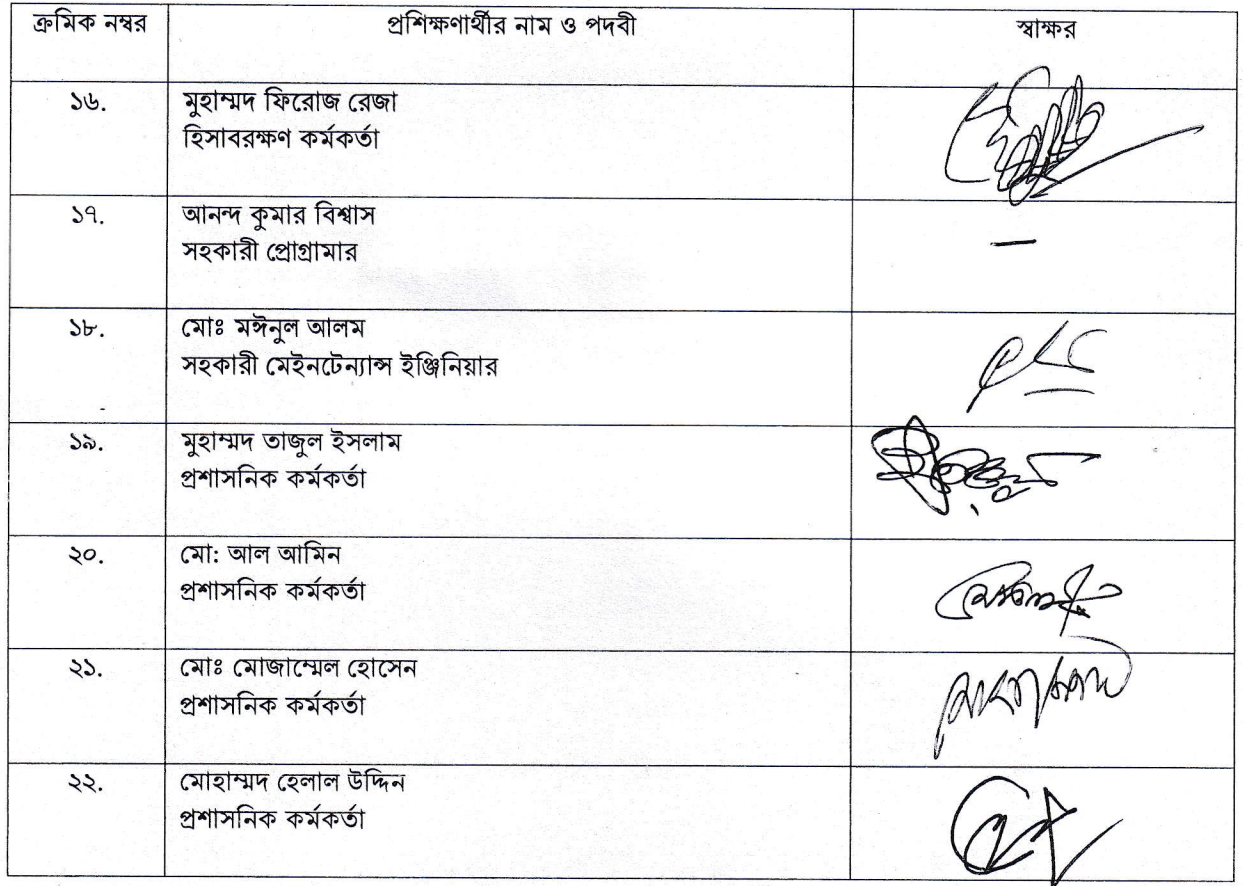 ক্রমিক নম্বর প্রশিক্ষণার্থীর নাম ও পদবী স্বাক্ষর
১৬. মুহাম্মদ ফিরোজ রেজা
হিসাবরক্ষণ কর্মকর্তা
১৭. আনন্দ কুমার বিশ্বাস —
সহকারী প্রোগ্রামার
১৮. মোঃ মঈনুল আলম
সহকারী মেইনটেন্যান্স ইঞ্জিনিয়ার
১৯. মুহাম্মদ তাজুল ইসলাম
প্রশাসনিক কর্মকর্তা
২০. মো: আল আমিন
প্রশাসনিক কর্মকর্তা
২১. মোঃ মোজাম্মেল হোসেন
প্রশাসনিক কর্মকর্তা
২২. মোহাম্মদ হেলাল উদ্দিন
প্রশাসনিক কর্মকর্তা